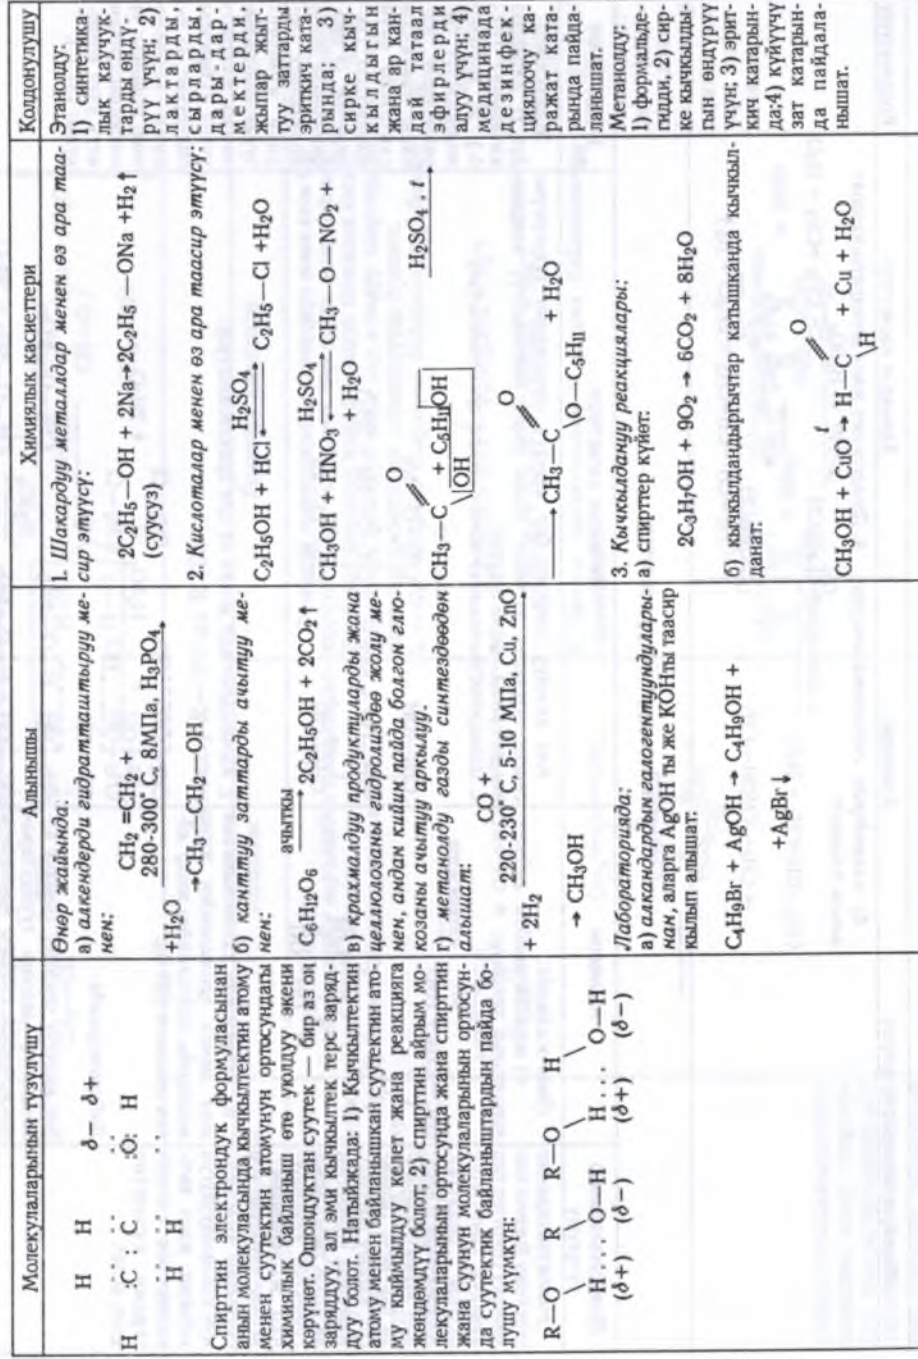 Молекулаларынын түзүлүшү
H H δ− δ+
H :C : C :O: H
H H
Спирттин электрондук формуласынан
анын молекуласында кычкылтектин атому
менен суутектин атомунун ортосундагы
химиялык байланыш өтө уюлдуу экени
көрүнөт. Ошондуктан суутек — бир аз оң
заряддуу, ал эми кычкылтек терс заряд-
дуу болот. Натыйжада: 1) Кычкылтектин
атому менен байланышкан суутектин ато-
му кыймылдуу келет жана реакцияга
жөндөмдүү болот; 2) спирттин айрым мо-
лекулаларынын ортосунда жана спирттин
жана суунун молекулаларынын ортосун-
да суутектик байланыштардын пайда бо-
лушу мүмкүн:
R—O R R—O H
H ... O—H H ... O—H
(δ+) (δ−) (δ+) (δ−)
Алынышы
Өнөр жайында:
а) алкендерди гидратташтыруу ме-
нен:
CH₂ =CH₂ +
+H₂O 280-300° C, 8МПа, H₃PO₄
→CH₃—CH₂—OH
б) канттуу заттарды ачытуу ме-
нен:
ачыткы
C₆H₁₂O₆ ⟶ 2C₂H₅OH + 2CO₂↑
в) крахмалдуу продуктуларды жана
целлюлозаны гидролиздөө жолу ме-
нен, андан кийин пайда болгон глю-
козаны ачытуу аркылуу.
г) метанолду газды синтездөөдөн
алышат:
CO +
+ 2H₂ 220-230° C, 5-10 МПа, Cu, ZnO
→ CH₃OH
Лабораторияда:
а) алкандардын галогентуундулары-
нан, аларга AgOH ты же KOHты таасир
кылып алышат:
C₄H₉Br + AgOH → C₄H₉OH +
+AgBr↓
Химиялык касиеттери
1. Шакардуу металлдар менен өз ара таа-
сир этүүсү:
2C₂H₅—OH + 2Na→2C₂H₅—ONa +H₂↑
(суусуз)
2. Кислоталар менен өз ара таасир этүүсү:
H₂SO₄
C₂H₅OH + HCl ⟷ C₂H₅—Cl +H₂O
H₂SO₄
CH₃OH + HNO₃ ⟷ CH₃—O—NO₂ +
+ H₂O
O
CH₃—C + C₅H₁₁OH H₂SO₄ , t
OH
O
⟶ CH₃—C + H₂O
O—C₅H₁₁
3. Кычкылдануу реакциялары:
а) спирттер күйөт:
2C₃H₇OH + 9O₂ → 6CO₂ + 8H₂O
б) кычкылдандыргычтар катышканда кычкыл-
данат:
t O
CH₃OH + CuO → H—C + Cu + H₂O
H
Колдонулушу
Этанолду:
1) синтетика-
лык каучук-
тарды өндү-
рүү үчүн; 2)
лактарды,
сырларды,
дары-дар-
мектерди,
жыпар жыт-
туу заттарды
эриткич ката-
рында; 3)
сирке кыч-
кылдыгын
жана ар кан-
дай татаал
эфирлерди
алуу үчүн; 4)
медицинада
дезинфек-
циялоочу ка-
ражат ката-
рында пайда-
ланышат.
Метанолду:
1) формальде-
гидди, 2) сир-
ке кычкылды-
гын өндүрүү
үчүн; 3) эрит-
кич катарын-
да;4) күйүүчү
зат катарын-
да пайдала-
нышат.